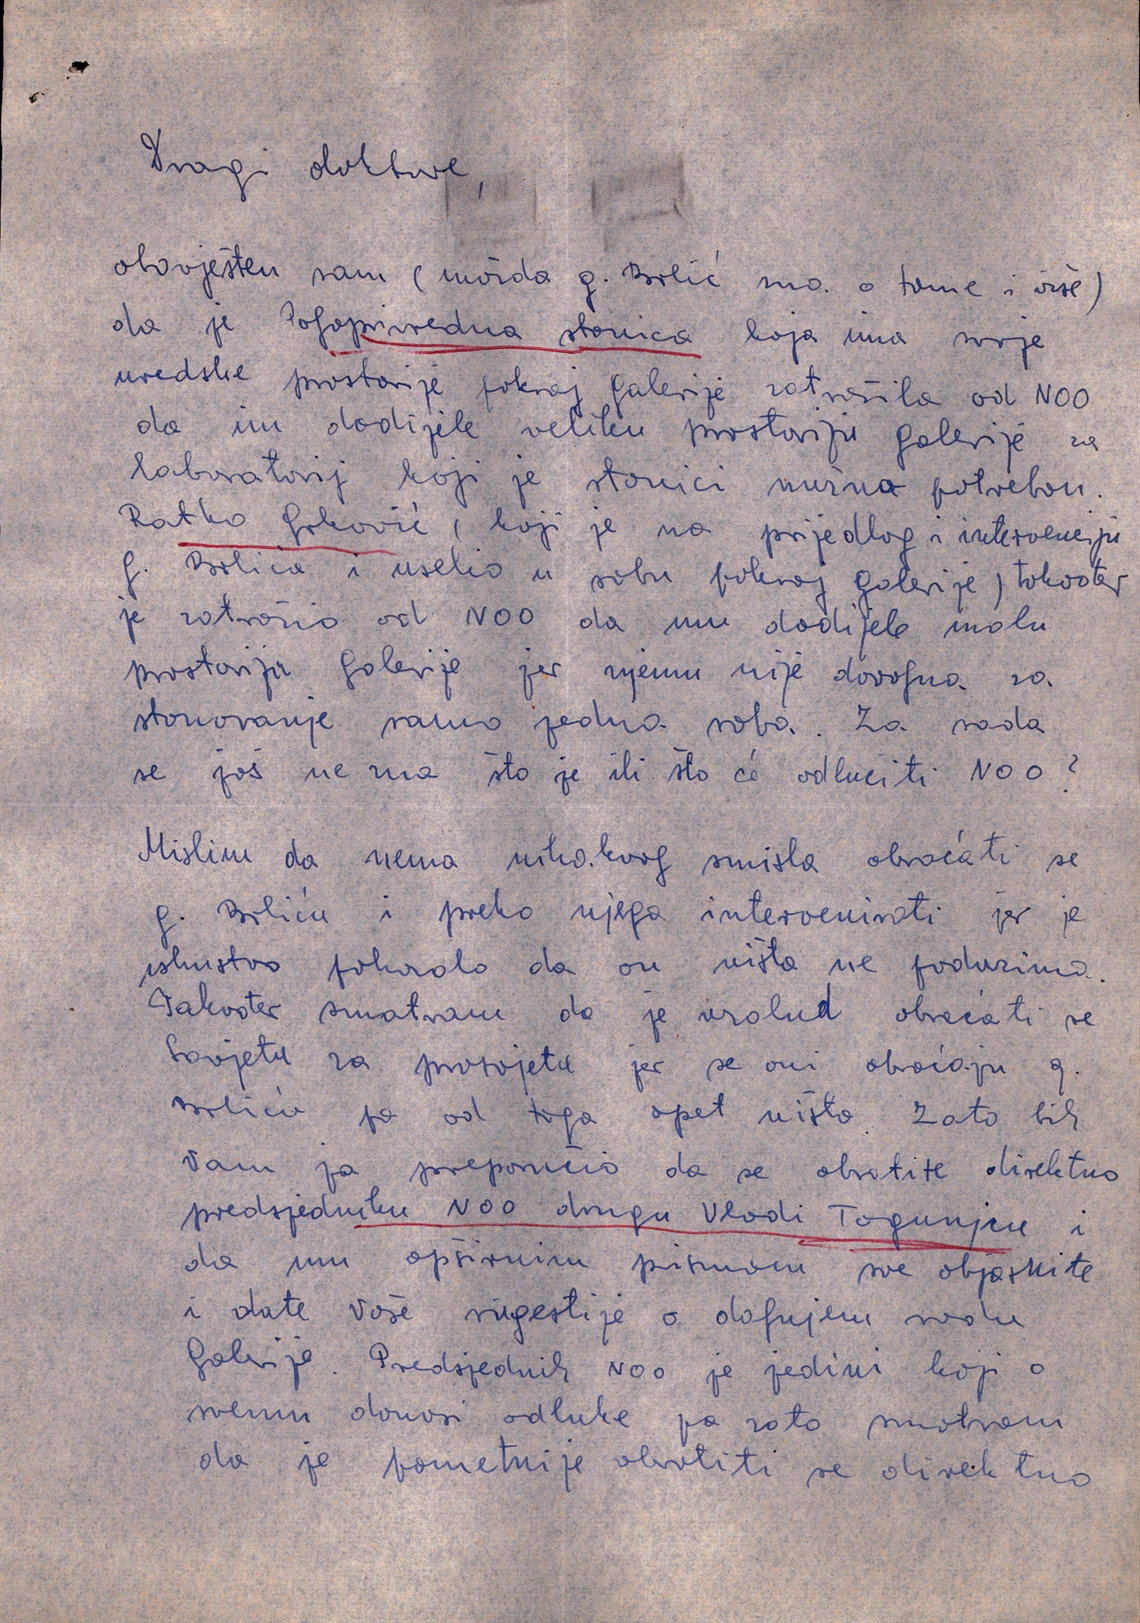 Dragi doktore,
obavješten sam (možda g. Brlić zna o tome i više)
da je Poljoprivredna stanica koja ima svoje
uredske prostorije pokraj galerije zatražila od NOO
da im dodijele veliku prostoriju galerije za
laboratorij koji je stanici nužno potreban.
Ratko Grković (koji je na prijedlog i intervenciju
g. Brlića i uselio u sobu pokraj galerije) također
je zatražio od NOO da mu dodijele malu
prostoriju galerije jer njemu nije dovoljna za
stanovanje samo jedna soba. Za sada
se još ne zna što je ili što će odlučiti NOO?
Mislim da nema nikakvog smisla obraćati se
g. Brliću i preko njega intervenirati jer je
iskustvo pokazalo da on ništa ne poduzima.
Također smatram da je uzalud obraćati se
Savjetu za prosvjetu jer se oni obraćaju g.
Brliću pa od toga opet ništa. Zato bih
Vam ja preporučio da se obratite direktno
predsjedniku NOO drugu Vladi Togunjcu i
da mu opširnim pismom sve objasnite
i date Vaše sugestije o daljnjem radu
Galerije. Predsjednik NOO je jedini koji o
svemu donosi odluke pa zato smatram
da je pametnije obratiti se direktno